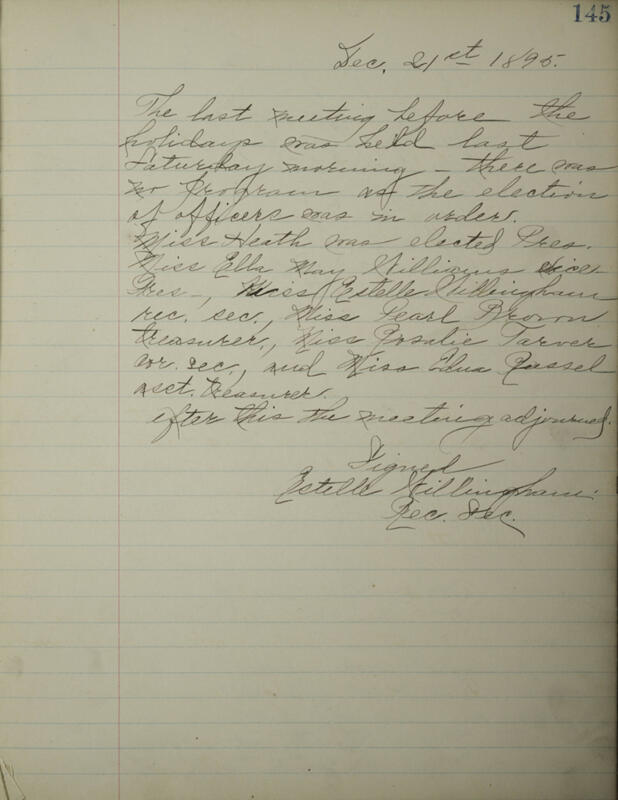 145
Dec. 21st 1895.
The last meeting before the
holidays was held last
Saturday morning - there was
no program as the election
of officers was in order.
Miss Heath was elected Pres.
Miss Ella May Williams vice
Pres -, Miss Estelle Stillingham
rec. sec., Miss Pearl Brown
treasurer, Miss Rosalie Tarver
cor. sec., and Miss Edna Russel
asct. treasurer.
after this the meeting adjourned.
Signed
Estelle Stillingham.
Rec. Sec.